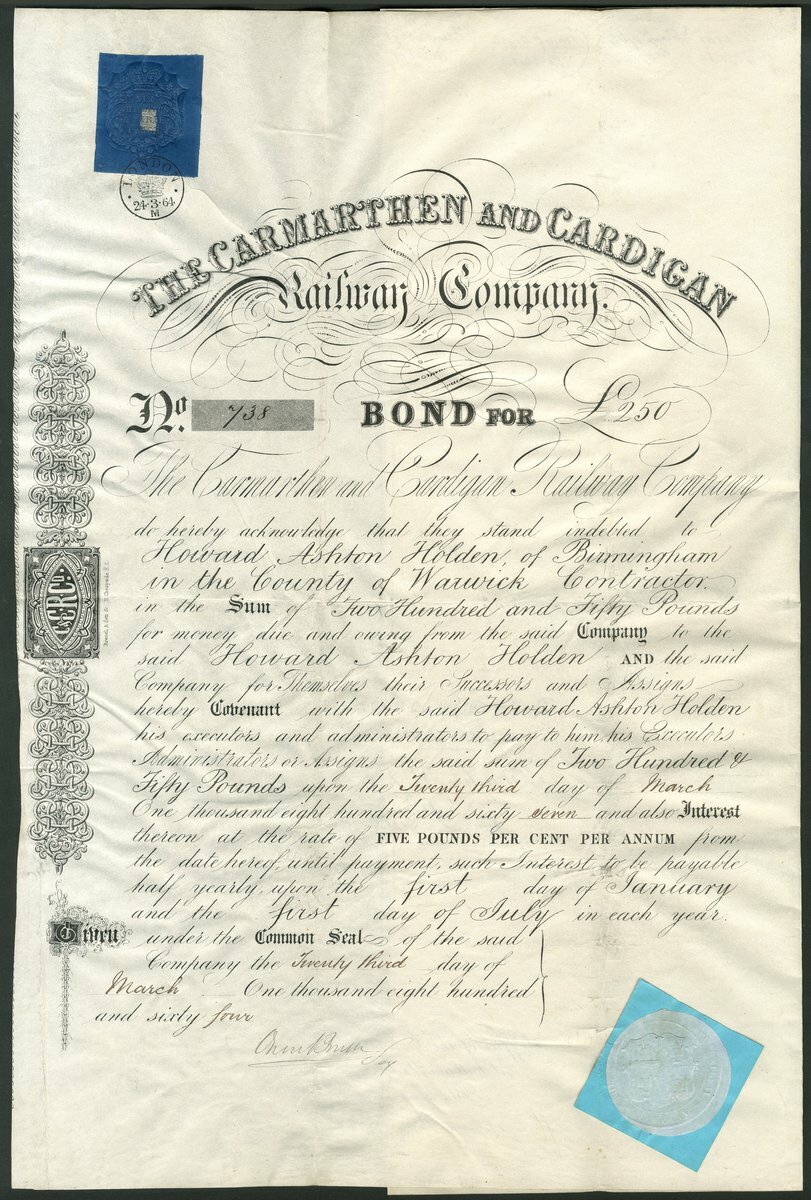 LONDON
24·3·64
THE CARMARTHEN AND CARDIGAN
Railway Company.
No. 738 BOND FOR £250
The Carmarthen and Cardigan Railway Company
do hereby acknowledge that they stand indebted to
Howard Ashton Holden, of Birmingham
in the County of Warwick Contractor.
in the Sum of Two Hundred and Fifty Pounds
for money due and owing from the said Company to the
said Howard Ashton Holden AND the said
Company for Themselves their Successors and Assigns
hereby Covenant with the said Howard Ashton Holden
his executors and administrators to pay to him, his Executors
Administrators or Assigns the said sum of Two Hundred &
Fifty Pounds upon the Twenty third day of March
One thousand eight hundred and sixty seven and also Interest
thereon at the rate of FIVE POUNDS PER CENT PER ANNUM from
the date hereof, until payment, such Interest to be payable
half yearly, upon the first day of January
and the first day of July in each year.
Given under the Common Seal of the said
Company the Twenty third day of
March One thousand eight hundred
and sixty four
Secy